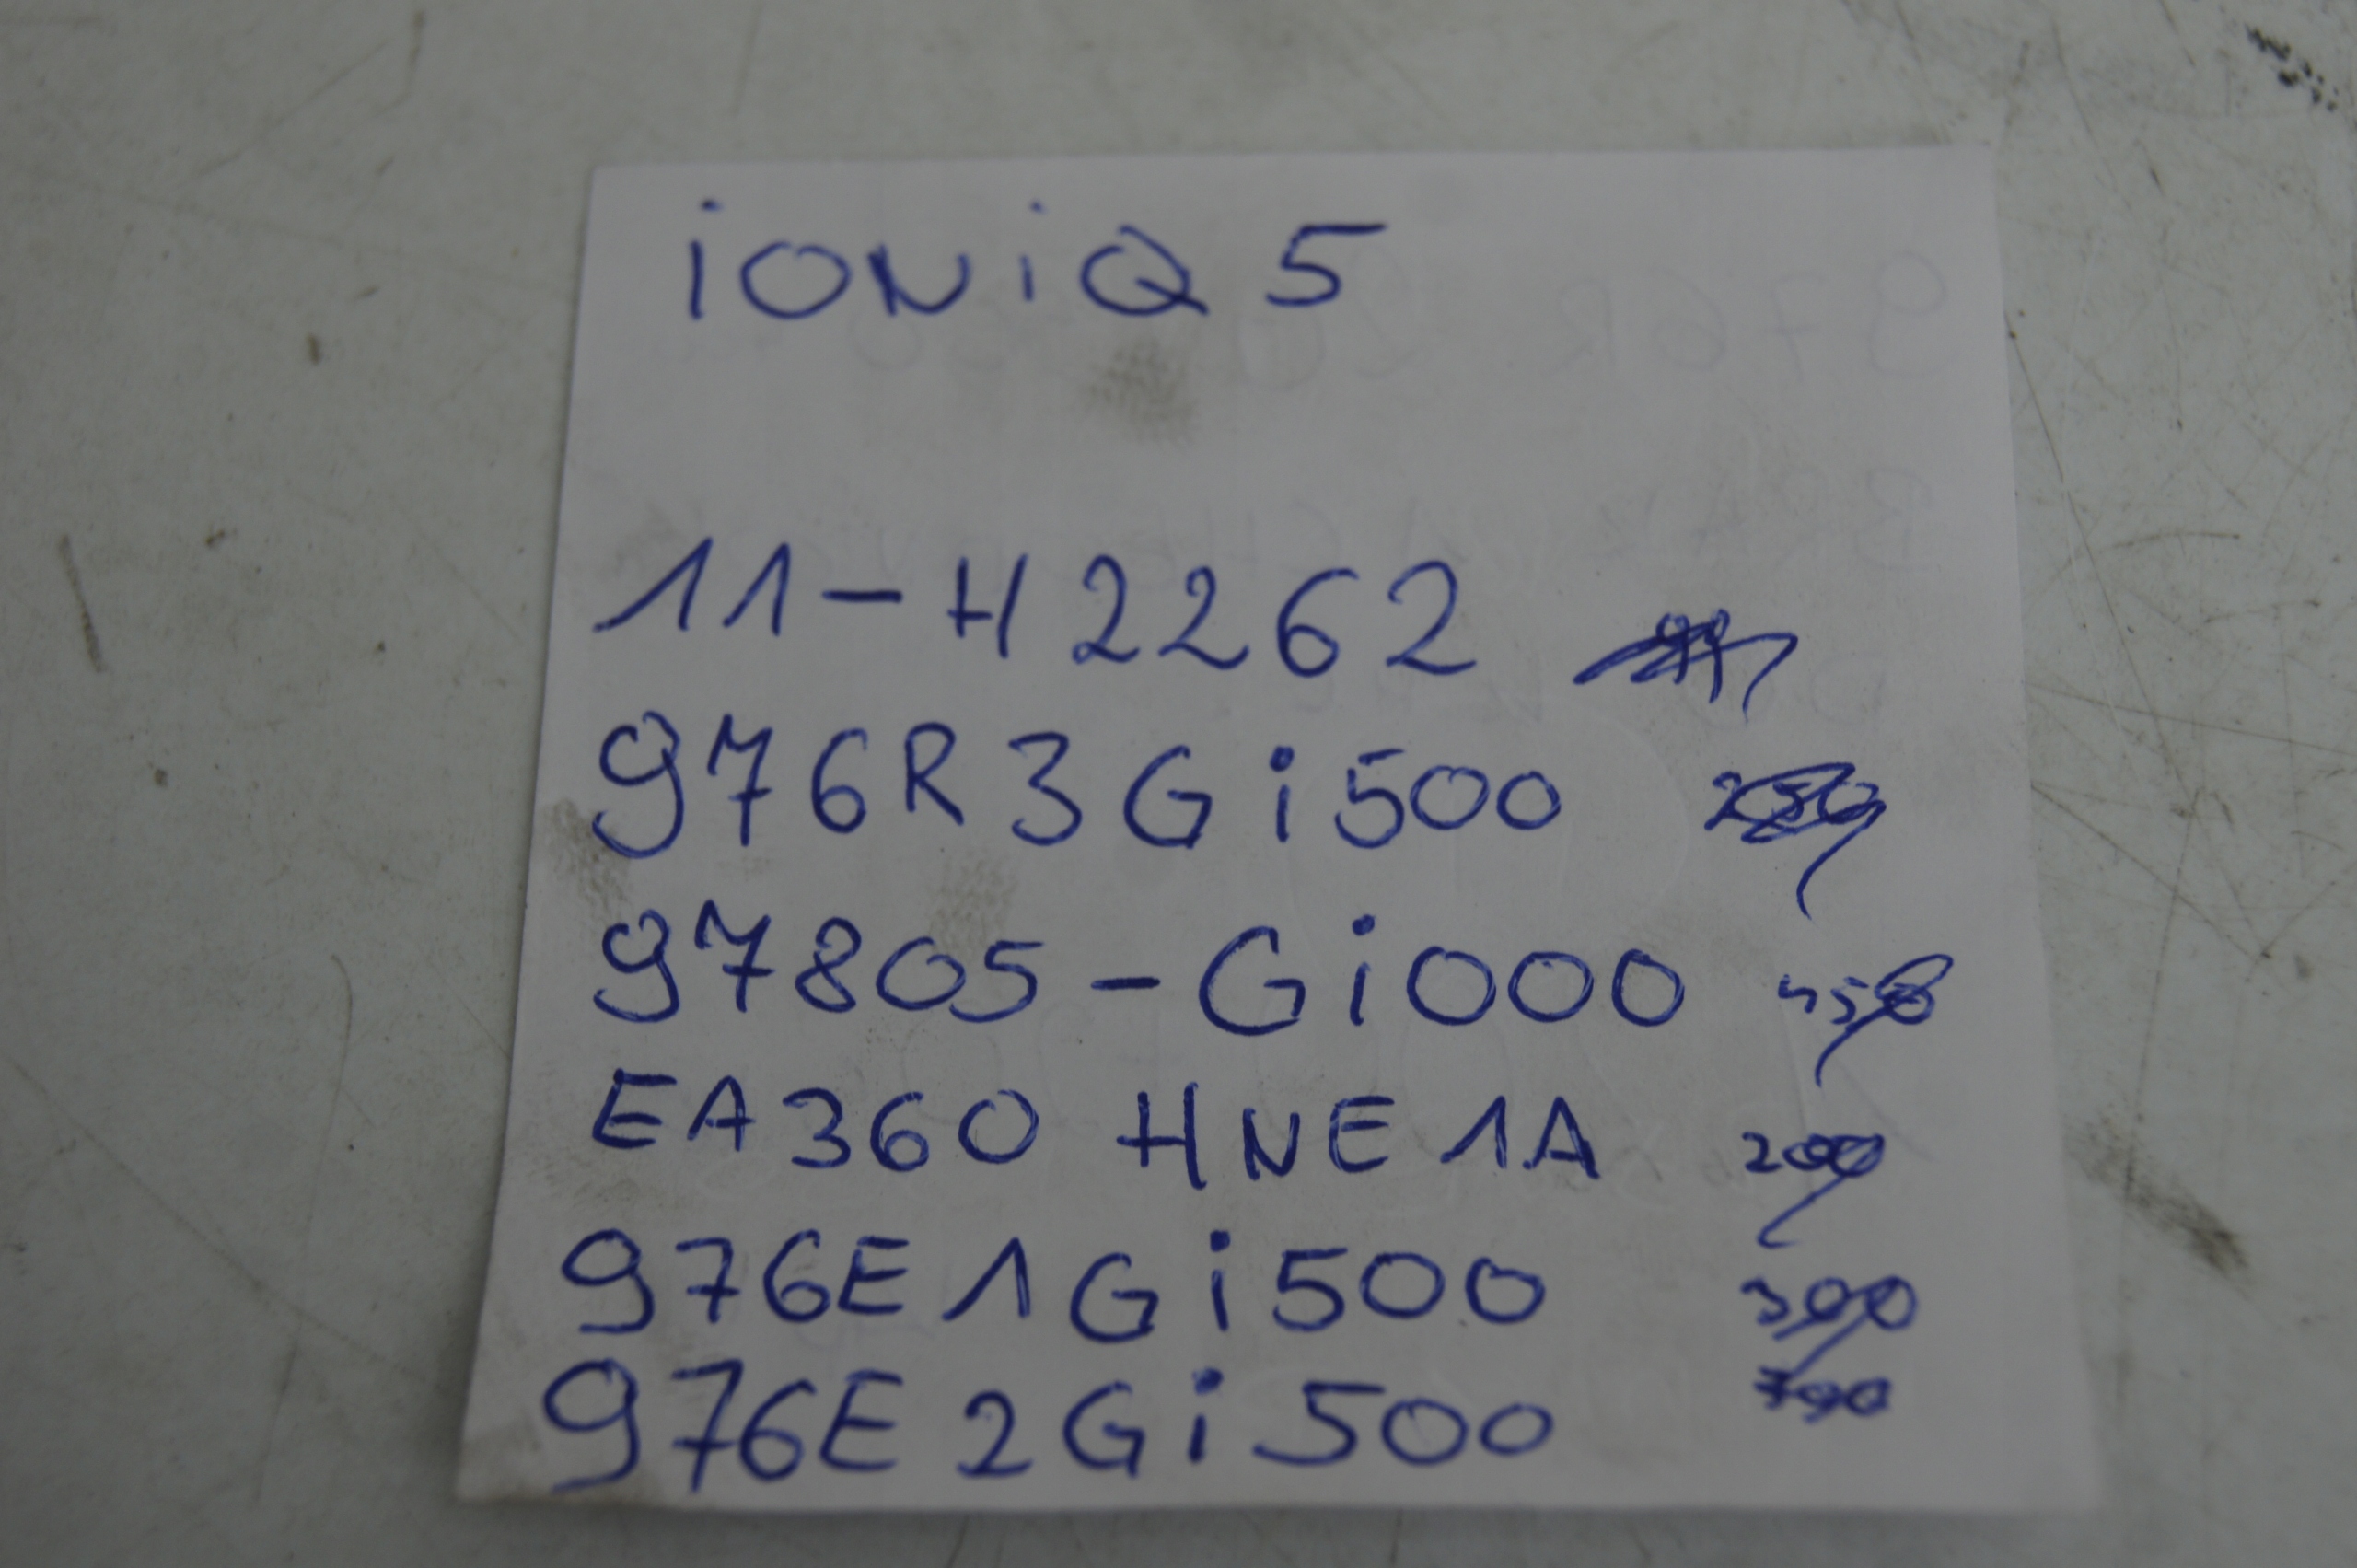 iONiQ 5
11-H2262
976R3Gi500
97805-Gi000
EA360 HNE1A 200
976E1Gi500 300
976E2Gi500